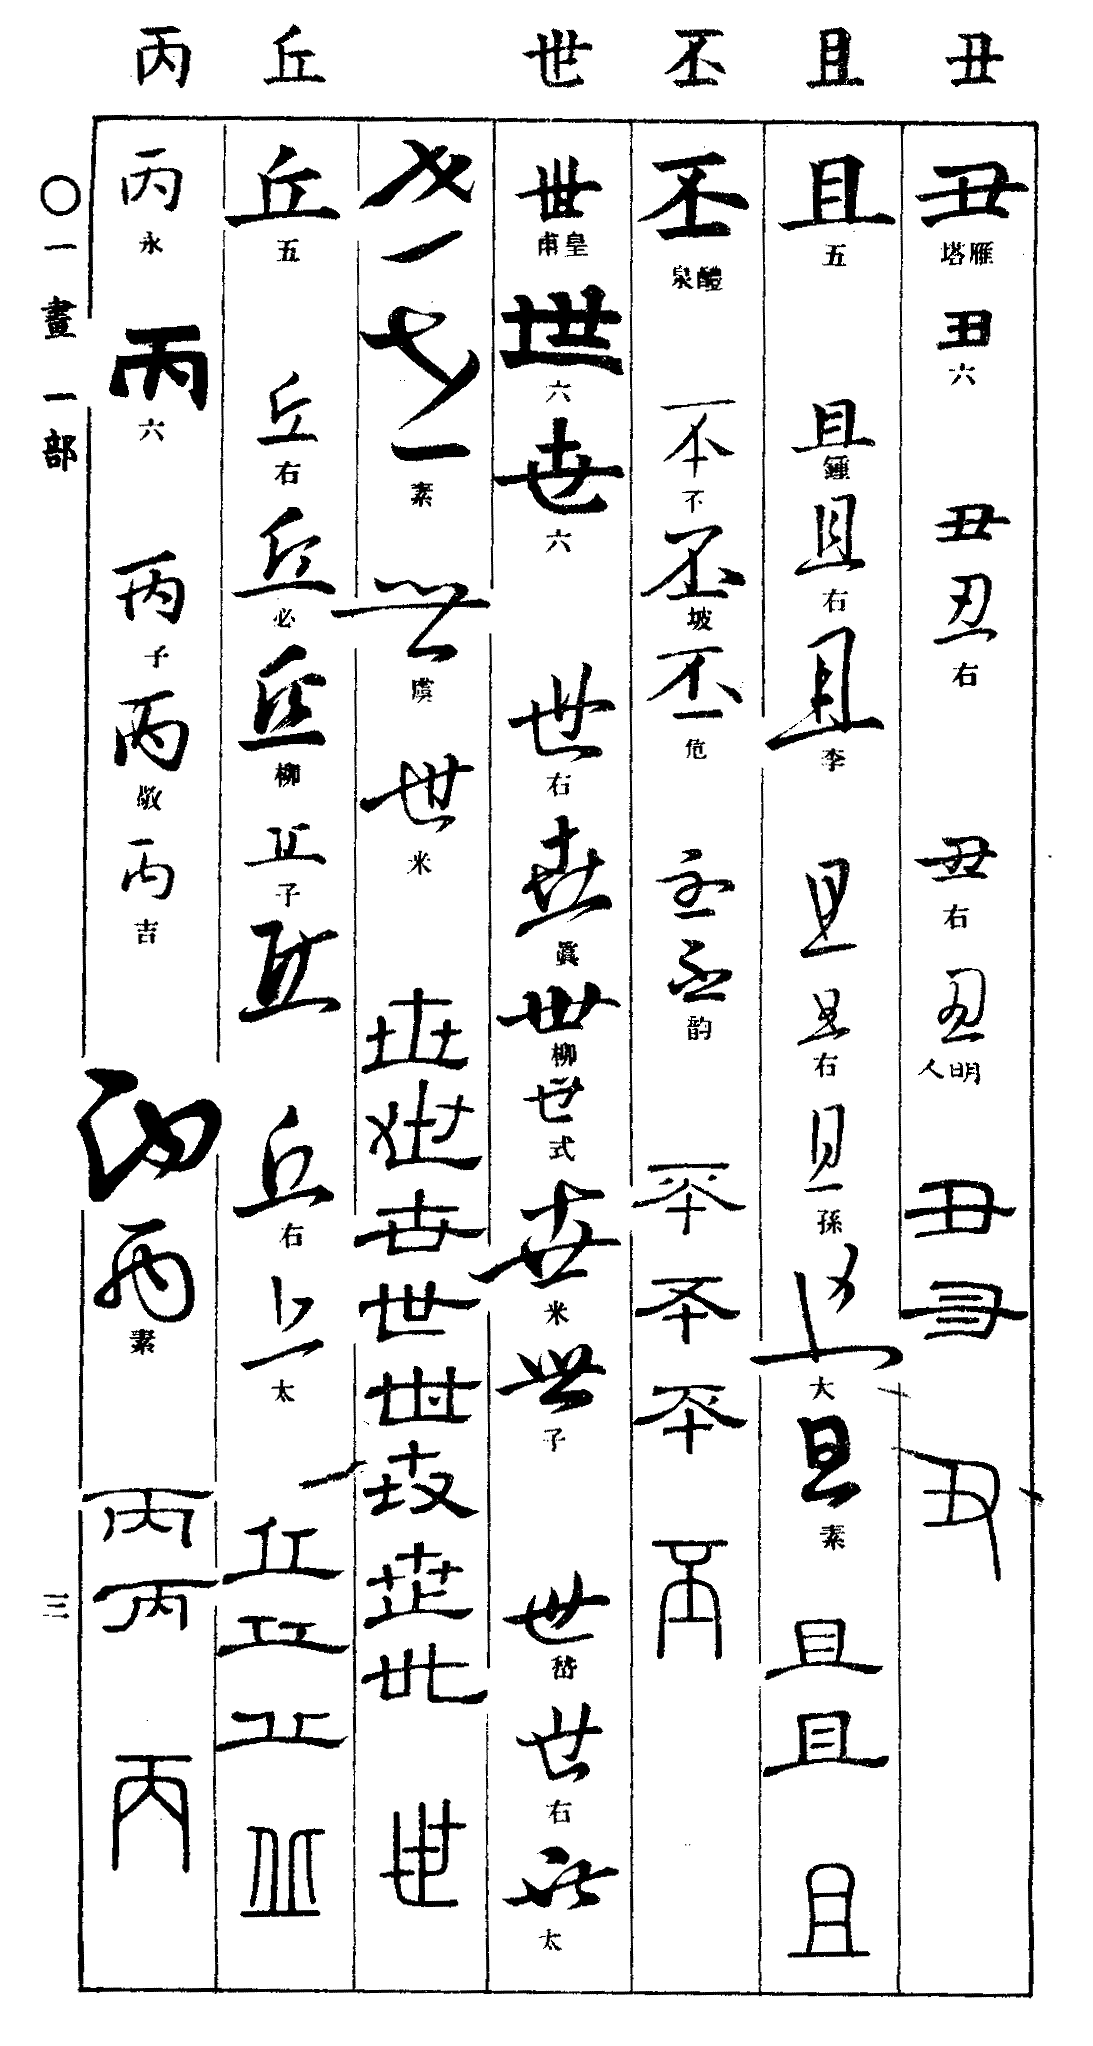 丑 且 丕 世 丘 丙
丑
雁塔
丑
六
丑
丑
右
丑
右
丑
明人
丑
丑
丑
且
五
且
鍾
且
右
且
李
且
且
右
且
孫
且
大
且
素
且
且
且
丕
醴泉
丕
不
丕
坡
丕
危
丕
丕
韵
丕
丕
丕
丕
世
皇甫
世
六
世
六
世
右
世
眞
世
柳
世
式
世
米
世
子
世
嵆
世
右
世
太
世
世
素
世
虞
世
米
世
世
世
世
世
世
世
世
世
丘
五
丘
右
丘
必
丘
柳
丘
子
丘
丘
右
丘
太
丘
丘
丘
丘
丙
永
丙
六
丙
子
丙
敬
丙
吉
丙
丙
素
丙
丙
丙
〇一畫 一部
三